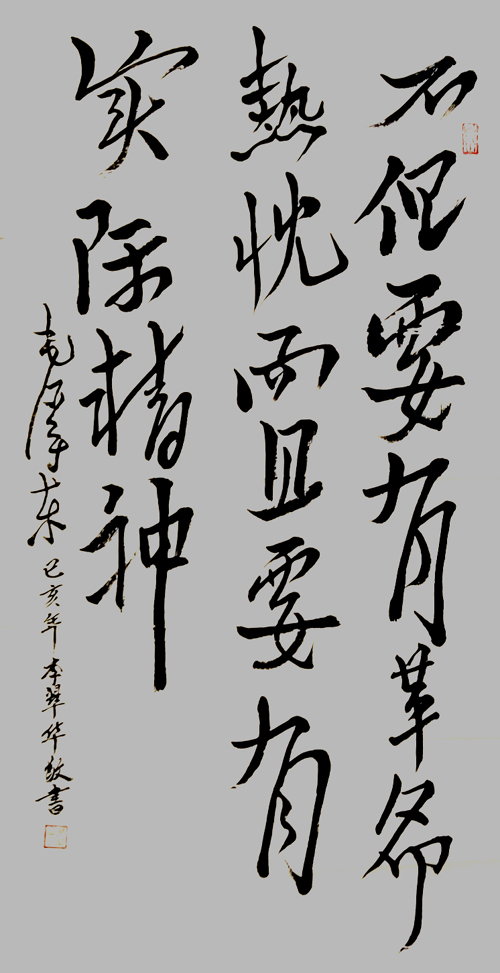 不但要有革命
热忱而且要有
实际精神
毛泽东 己亥年 李翠华敬书